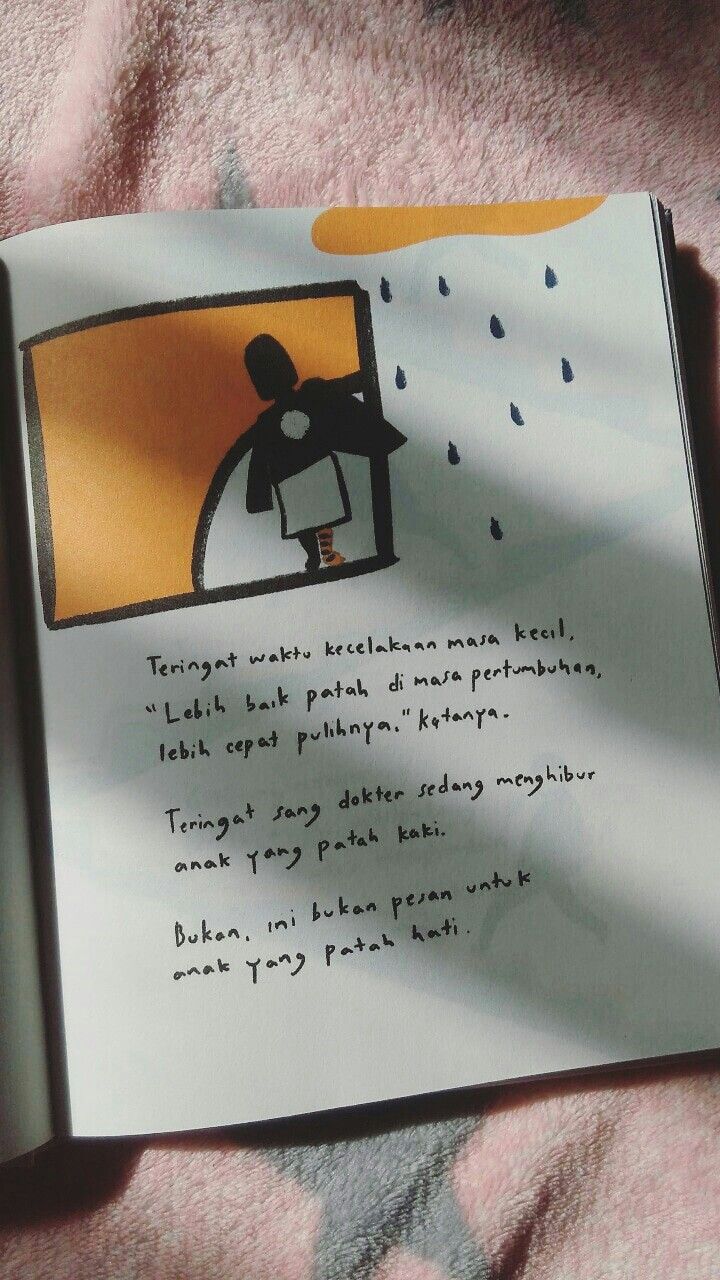 Teringat waktu kecelakaan masa kecil.
"Lebih baik patah di masa pertumbuhan,
lebih cepat pulihnya." katanya.
Teringat sang dokter sedang menghibur
anak yang patah kaki.
Bukan, ini bukan pesan untuk
anak yang patah hati.